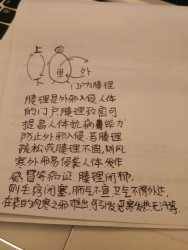 上
外
里
门户为腠理
腠理是外邪入侵人体
的门户腠理致密可
提高人体抗病毒能力
防止外邪入侵若腠理
疏松或腠理不固,则风
寒外邪易侵袭人体发作
感冒等病证腠理闭郁,
则毛窍闭塞,肺气不宣卫气不得外达
在表的风寒之邪难出可引发恶寒发热无汗等